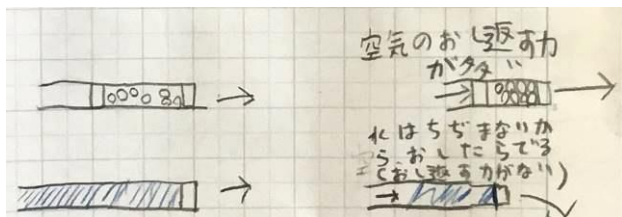 空気のおし返す力
が多い
水はちぢまないか
ら、おしたらでる
(おし返す力がない)